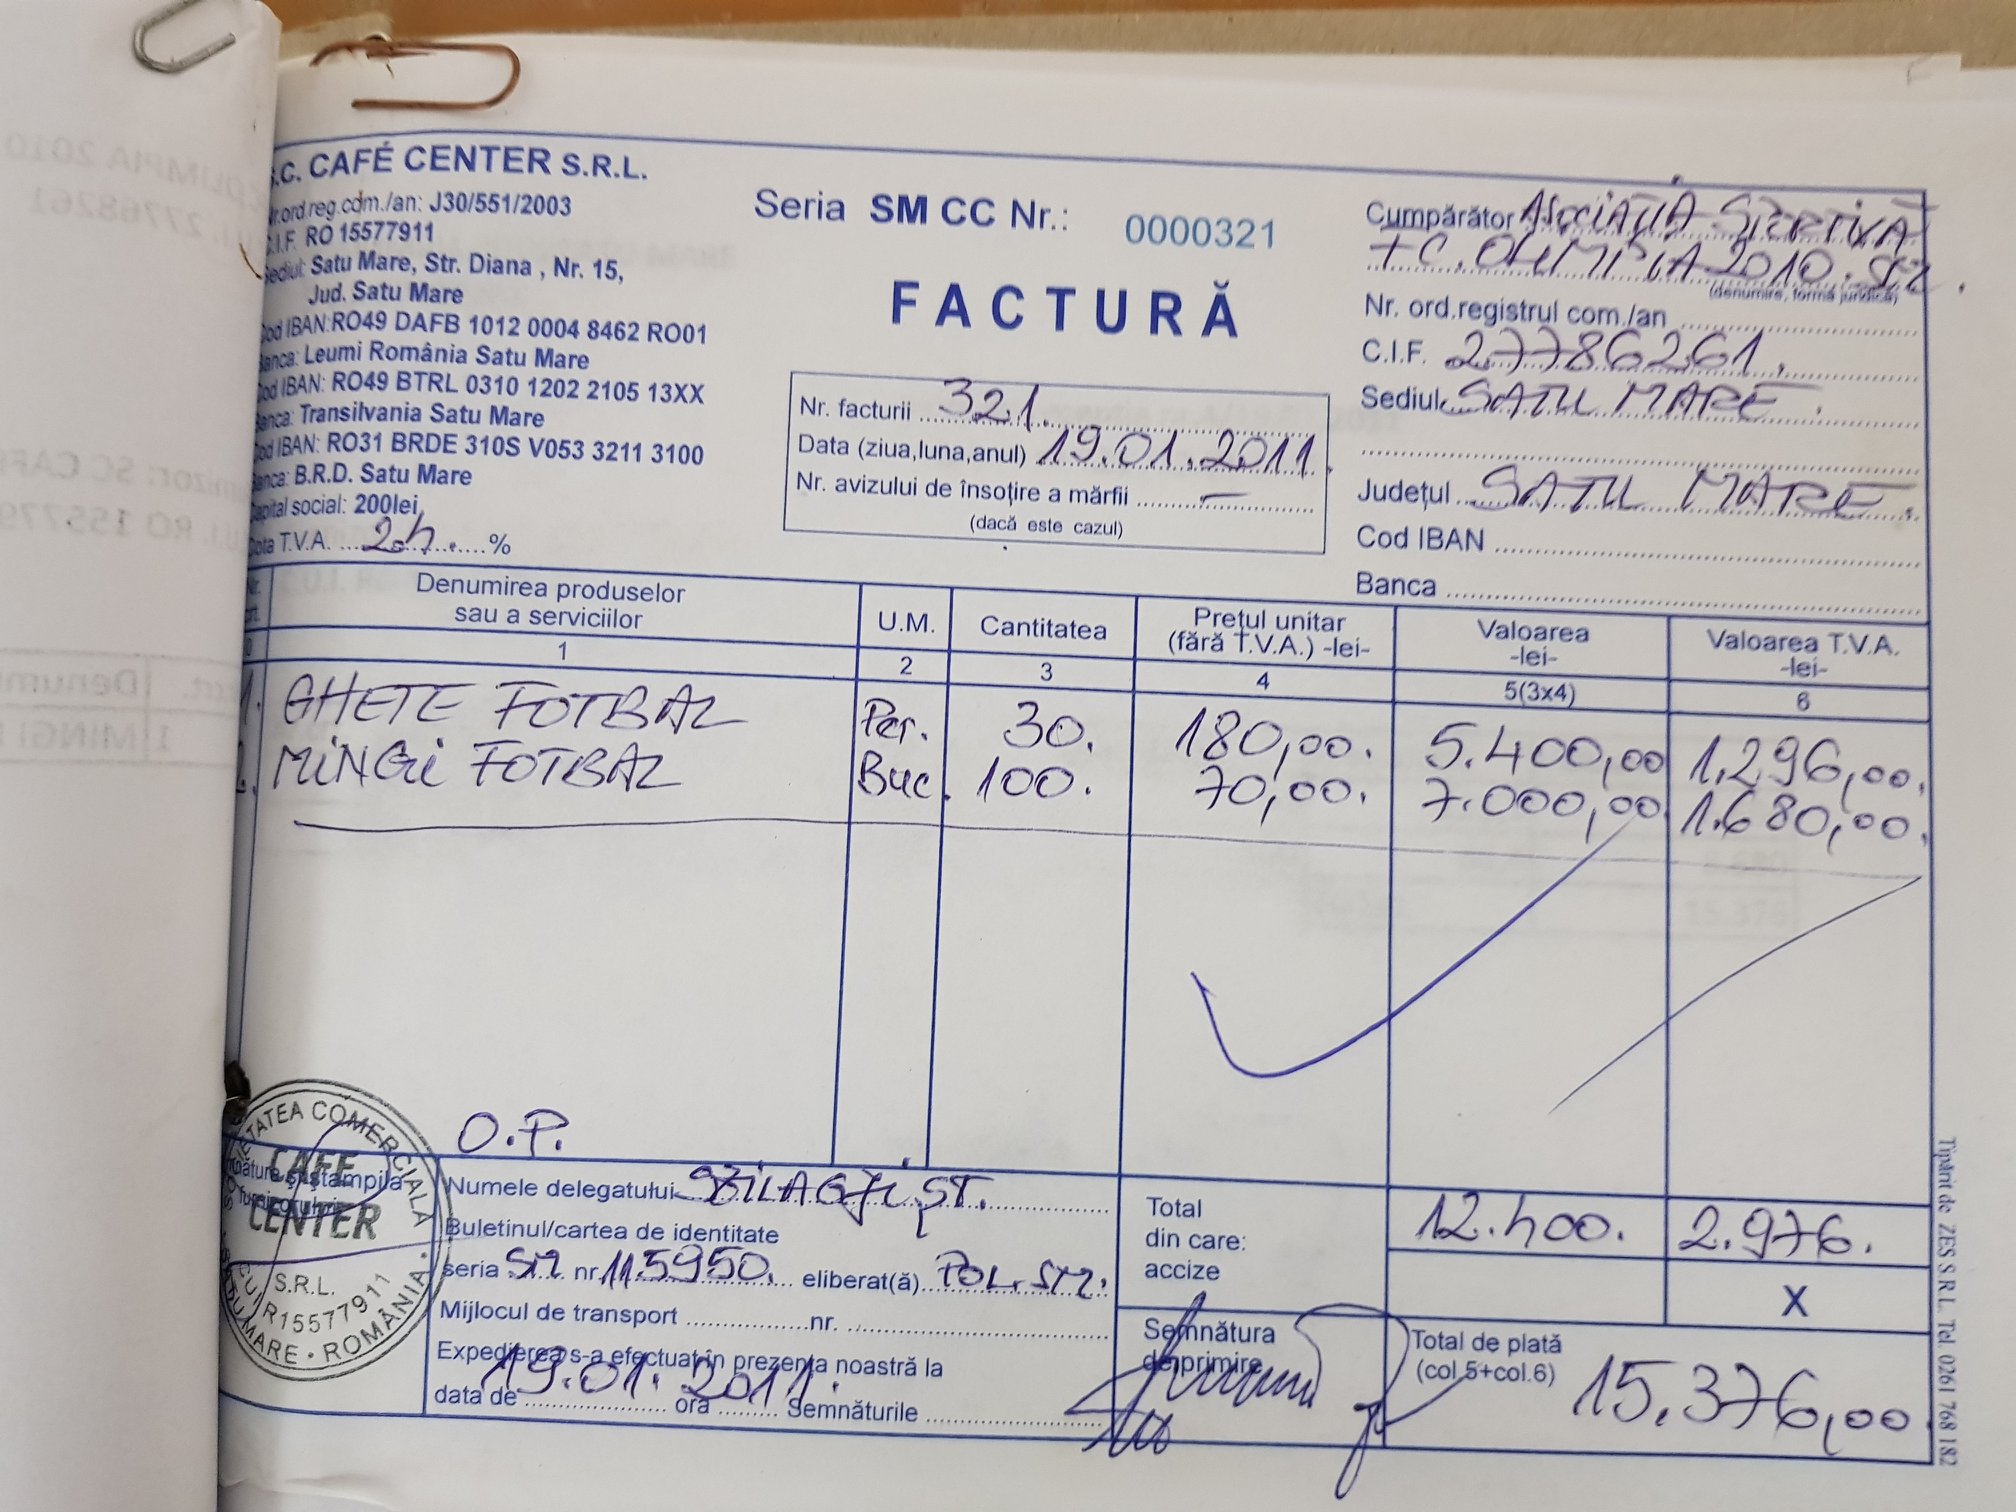 .C. CAFÉ CENTER S.R.L.
Nr.ord.reg.com./an: J30/551/2003
C.I.F. RO 15577911
Sediul: Satu Mare, Str. Diana , Nr. 15,
Jud. Satu Mare
Cod IBAN:RO49 DAFB 1012 0004 8462 RO01
Banca: Leumi România Satu Mare
Cod IBAN: RO49 BTRL 0310 1202 2105 13XX
Banca: Transilvania Satu Mare
Cod IBAN: RO31 BRDE 310S V053 3211 3100
Banca: B.R.D. Satu Mare
Capital social: 200lei
Cota T.V.A. 24. %
Seria SM CC Nr.: 0000321
FACTURĂ
Nr. facturii 321.
Data (ziua,luna,anul) 19.01.2011.
Nr. avizului de însoțire a mărfii —
(dacă este cazul)
Cumpărător ASOCIAȚIA SPORTIVĂ
FC. OLIMPIA 2010. SM.
(denumire, forma juridică)
Nr. ord.registrul com./an
C.I.F. 27786261.
Sediul SATU MARE.
Județul SATU MARE.
Cod IBAN
Banca
Nr. crt. Denumirea produselor sau a serviciilor U.M. Cantitatea Prețul unitar (fără T.V.A.) -lei- Valoarea -lei- Valoarea T.V.A. -lei-
0 1 2 3 4 5(3x4) 6
1. GHETE FOTBAL Per. 30. 180,00. 5.400,00 1.296,00.
2. MINGI FOTBAL Buc. 100. 70,00. 7.000,00 1.680,00.
O.P.
SOCIETATEA COMERCIALĂ
CAFE
CENTER
S.R.L.
CUI R15577911
SATU MARE • ROMÂNIA •
Semnătura și ștampila
furnizorului
Numele delegatului SZILAGYI ȘT.
Buletinul/cartea de identitate
seria SM nr. 115950. eliberat(ă) POL. SM.
Mijlocul de transport nr.
Expedierea s-a efectuat în prezența noastră la
data de 19.01.2011. ora Semnăturile
Total
din care:
accize
12.400. 2.976.
X
Semnătura
de primire
Total de plată
(col.5+col.6)
15.376,00
Tipărit de ZES S.R.L. Tel. 0261 768 182